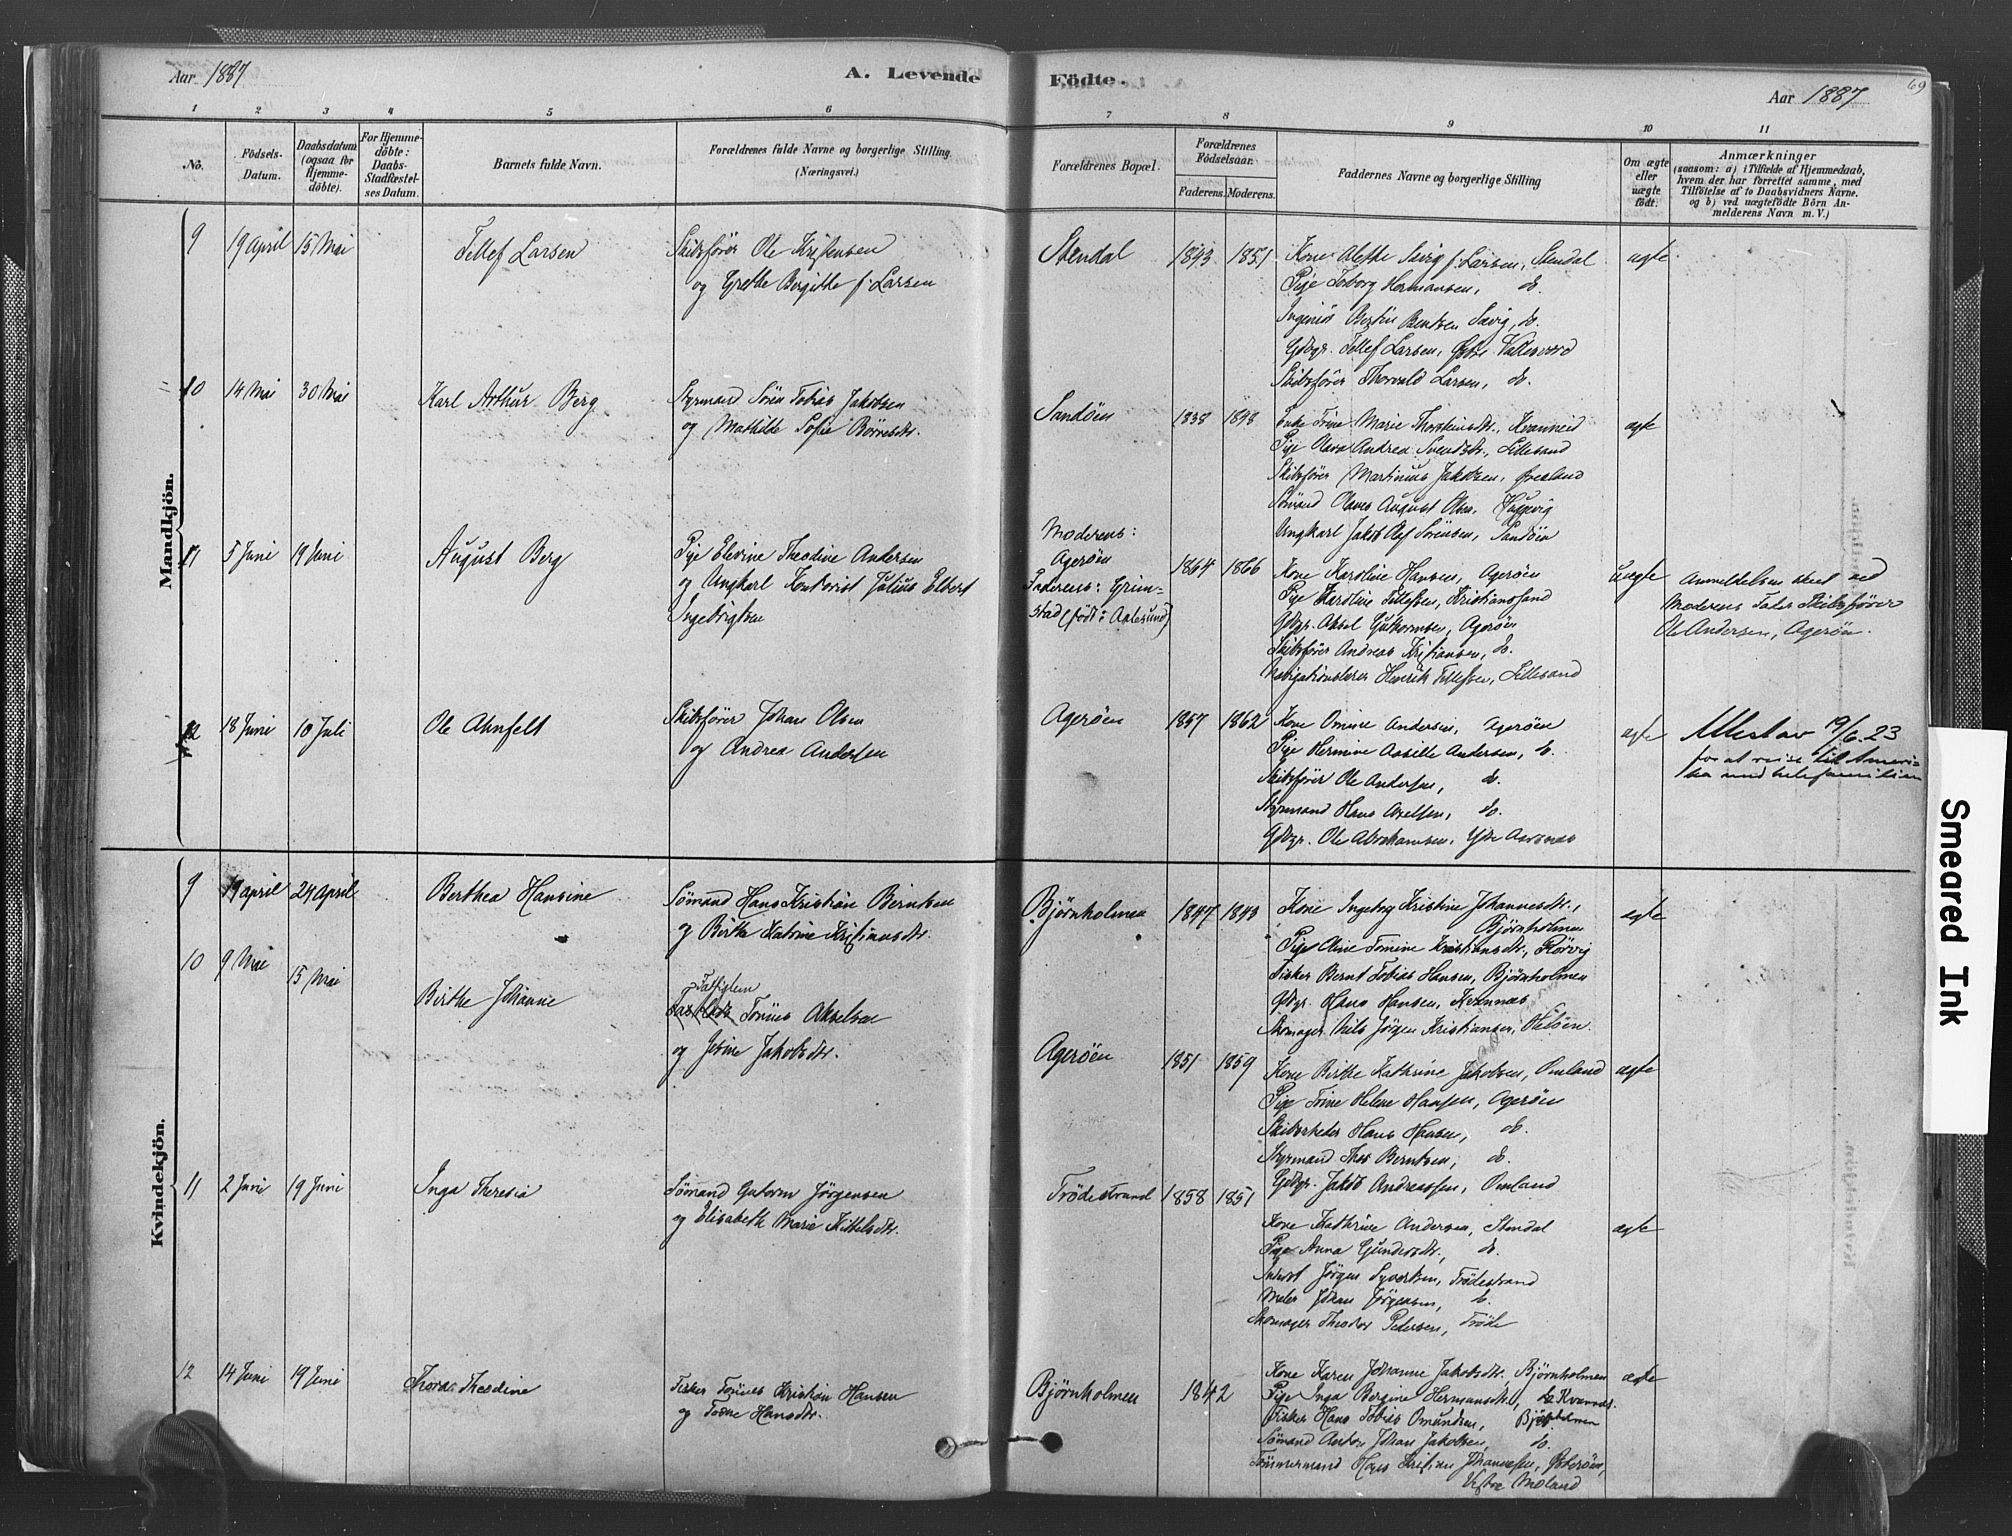 Aar 1887
A. Levende Födte.
Aar 1887
69
1 2 3 4 5 6 7 8 9 10 11
No.
Födsels-Datum.
Daabsdatum (ogsaa for Hjemme-döbte).
For Hjemme-döbte: Daabs-Stadfæstel-ses Datum.
Barnets fulde Navn.
Forældrenes fulde Navne og borgerlige Stilling
(Næringsvei.)
Forældrenes Bopæl.
Forældrenes Födselsaar.
Faderens. Moderens.
Faddernes Navne og borgerlige Stilling
Om ægte eller uægte födt.
Anmærkninger
(saasom: a) i Tilfælde af Hjemmedaab,
hvem der har forrettet samme, med
Tilföielse af to Daabsvidners Navne.
og b) ved uægtefödte Börn An-
melderens Navn m. V.)
Mandkjön.
9 19 April 15 Mai Tellef Larsen
Skibsfører Ole Kristensen
og Grethe Birgitte f. Larsen
Stendal 1843 1851
Kone Alethe f. Larsen, Stendal
Pige Torborg Hermansen, do.
Bentsen do.
Gdbgr. Tellef Larsen, Østre Vallesværd
Skibsfører Thorvald Larsen, do.
ægte
10 14 Mai 30 Mai Karl Arthur Berg
Styrmand Sören Tobias Jakobsen
og Mathilde Sofie
Sandöen 1838 1848
Enke Trine Marie
Pige Olava Andrea Svendsdtr., Lillesand
Skibsfører Martinus Jakobsen,
Sömand Olaves August Olsen,
Ungkarl Jakob Olef Sörensen, Sandöen
ægte
11 5 Juni 19 Juni August Berg
Pige Elevine Theodine Andersen
og Ungkarl Kontorist Julius Elbert
Ingebrigtsen
Moderens:
Agerøen
Faderens: Grim-
stad (født i Aalesund)
1864 1866
Kone Karoline Hansen, Agerøen
Pige Karoline Tellefsen, Kristianssand
Gdbgr. Aksel Guttormsen, Agerøen
Skibsfører Andreas Kristiansen, do.
Navigationslærer Henrik Tellefsen, Lillesand
uægte
Anmeldelsen skeet ved
Moderens Fader Skibsfører
Ole Andersen, Agerøen.
12 18 Juni 10 Juli Ole Ahnfelt
Skibsfører Johan Olsen
og Andrea Andersen
Agerøen 1857 1862
Kone Omine Andersen, Agerøen
Pige Hermine Andersen, do.
Skibsfører Ole Andersen, do.
Styrmand Hans Axelsen, do.
Gdbgr. Ole Abrahamsen, Ytre Aarsnes
ægte
Attest av 19/6.23
for at reise til Ameri-
ka med hele familien
Kvindekjön.
9 19 April 24 April Berthea Hansine
Sømand Hans Kristian Berntsen
og Birthe Katrine Kristiansdtr.
Bjørnholmen 1847 1843
Kone Ingeborg Kristine Johannesdtr.,
Bjørnholmen
Pige Aline Tomine Kristiansdtr., Rørvig
Fisker Bernt Tobias Hansen, Bjørnholmen
Gdbgr. Hans Hansen, Kvannes
Skomager Nils Jørgen Kristiansen,
ægte
10 9 Mai 15 Mai Birthe Johanne
Fattiglem
Tønnes Akselsen
og Jesine Jakobsdtr.
Agerøen 1851 1859
Kone Birthe Kathrine Jakobsen, Omland
Pige Trine Helene Hansen, Agerøen
Skibsrheder Hans Hansen, do.
Styrmand Thos Berntsen, do.
Gdbgr. Jakob Andreassen, Omland
ægte
11 2 Juni 19 Juni Inga Theresia
Sømand Gutorm Jørgensen
og Elisabeth Marie Kittelsdtr.
Trødestrand 1858 1851
Kone Kathrine Andersen, Stendal
Pige Anna Gundersdtr., do.
Jørgen Syvertsen, Trødestrand
Maler Johan Jørgensen, do.
Skomager Theodor Petersen, Trøde
ægte
12 14 Juni 19 Juni Thora Theodine
Fisker Tønnes Kristian Hansen
og Tone Hansdtr.
Bjørnholmen 1842
Kone Karen Johanne Jakobsdtr., Bjørnholmen
Pige Inga Bergine Hermansdtr., Kvannes
Fisker Hans Tobias Omundsen, Bjørnholmen
Sømand Anton Johan Jakobsen, do.
Tømmermand Hans Kristian Johannesen,
Vestre Moland
ægte
Smeared Ink